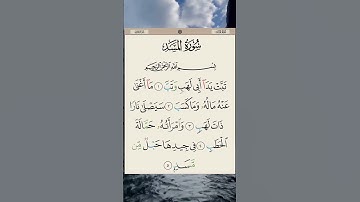 سُورَةُ المَسَدِ
بِسْمِ اللَّهِ الرَّحْمَٰنِ الرَّحِيمِ
تَبَّتْ يَدَآ أَبِي لَهَبٍ وَتَبَّ ١ مَآ أَغْنَىٰ
عَنْهُ مَالُهُۥ وَمَا كَسَبَ ٢ سَيَصْلَىٰ نَارًا
ذَاتَ لَهَبٍ ٣ وَٱمْرَأَتُهُۥ حَمَّالَةَ
ٱلْحَطَبِ ٤ فِي جِيدِهَا حَبْلٌ مِّن
مَّسَدٍۭ ٥